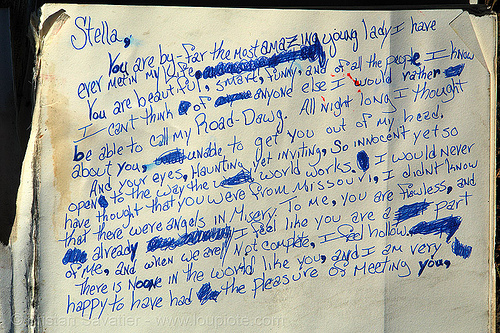 Stella,
You are by-far the most amazing young lady I have
ever met in my life.
You are beautiful, smart, funny, and of all the people I know
I can't think of anyone else I would rather
be able to call my Road-Dawg. All night long I thought
about you, unable to get you out of my head.
And your eyes, Haunting yet inviting, So innocent yet so
open to the way the world works. I would never
have thought that you were from Missouri, I didn't know
that there were angels in Misery. To me, you are flawless, and
already I feel like you are a part
of me, and when we are Not complete, I feel hollow.
There is Noone in the world like you, and I am very
happy to have had the pleasure of Meeting you,
© Tristan Savatier - www.loupiote.com